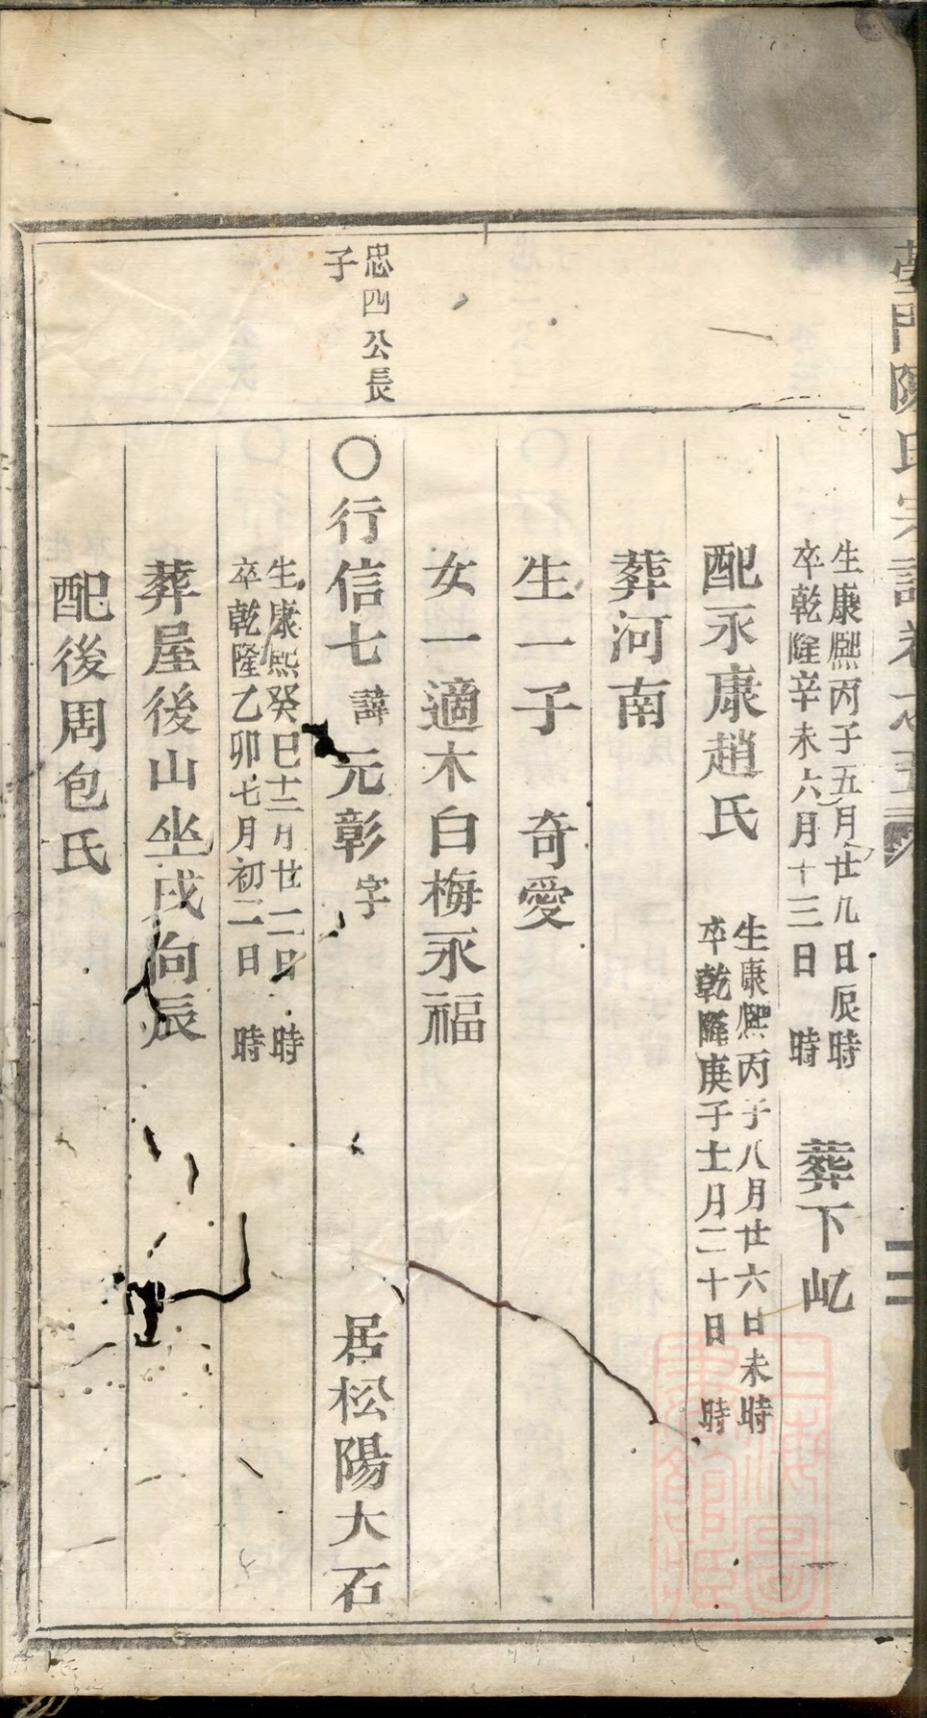 陳氏宗譜卷之五
生康熙丙子五月廿九日辰時
卒乾隆辛未六月十三日 時
葬下屹
配永康趙氏
生康熙丙子八月廿六日未時
卒乾隆庚子十一月二十日 時
葬河南
生一子 奇愛
女一適木白梅永福
忠四公長
子
〇行信七諱元彰字 居松陽大石
生康熙癸巳十二月廿二日 時
卒乾隆乙卯七月初二日 時
葬屋後山坐戌向辰
配後周包氏